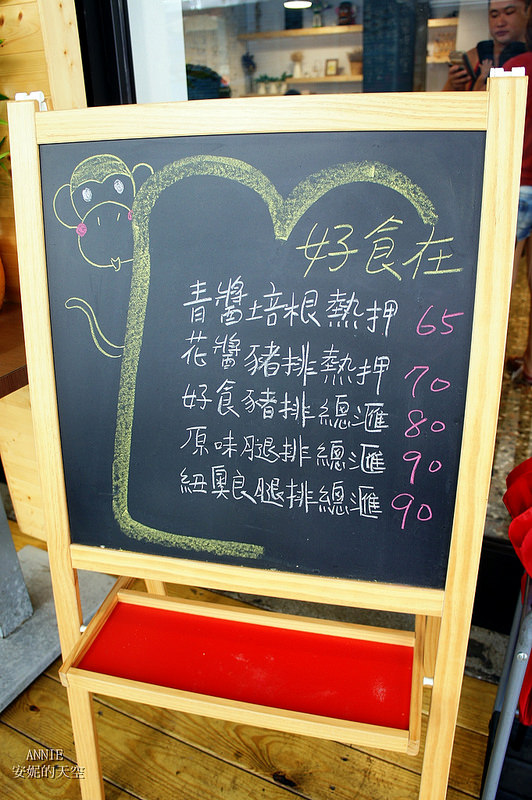 好食在
青醬培根熱押 65
花醬豬排熱押 70
好食豬排總滙 80
原味腿排總滙 90
紐奧良腿排總滙 90
ANNIE
安妮的天空